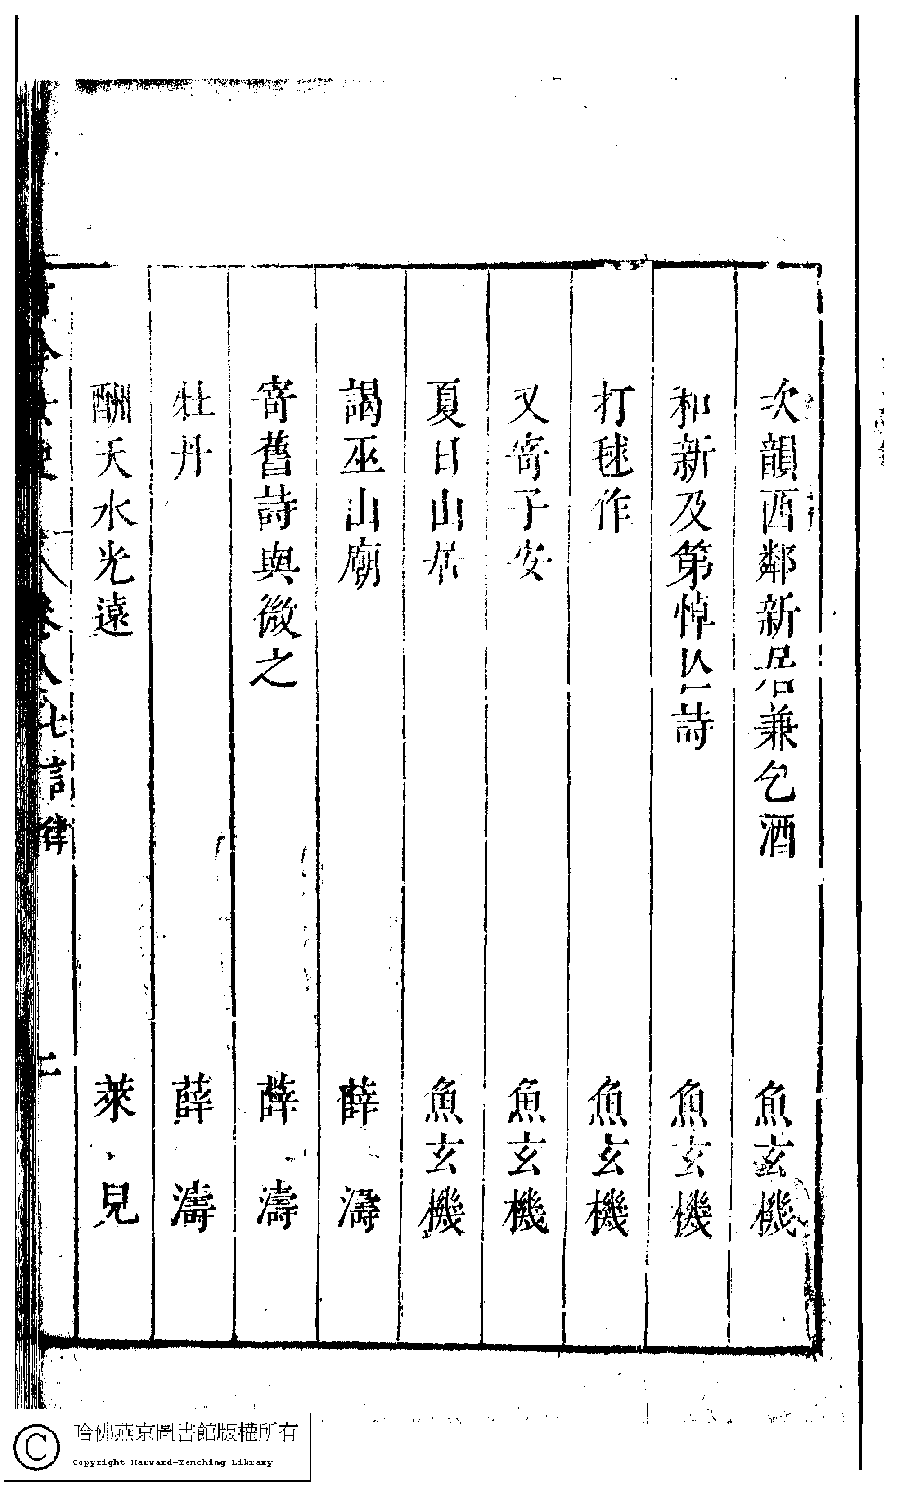 次韻西鄰新居兼乞酒 魚玄機
和新及第悼亡詩 魚玄機
打毬作 魚玄機
又寄子安 魚玄機
夏日山居 魚玄機
謁巫山廟 薛濤
寄舊詩與微之 薛濤
牡丹 薛濤
酬天水光遠 萊兒
古今女史 卷八 七言律 二
哈佛燕京圖書館版權所有
Copyright Harvard-Yenching Library